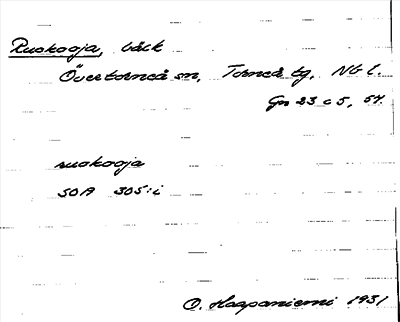 Ruokooja, bäck
Övertorneå sn, Torneå tg, Nb l.
Gs 23 c 5, 54.
ruokooja
SOA 305:i
O. Haapaniemi 1931